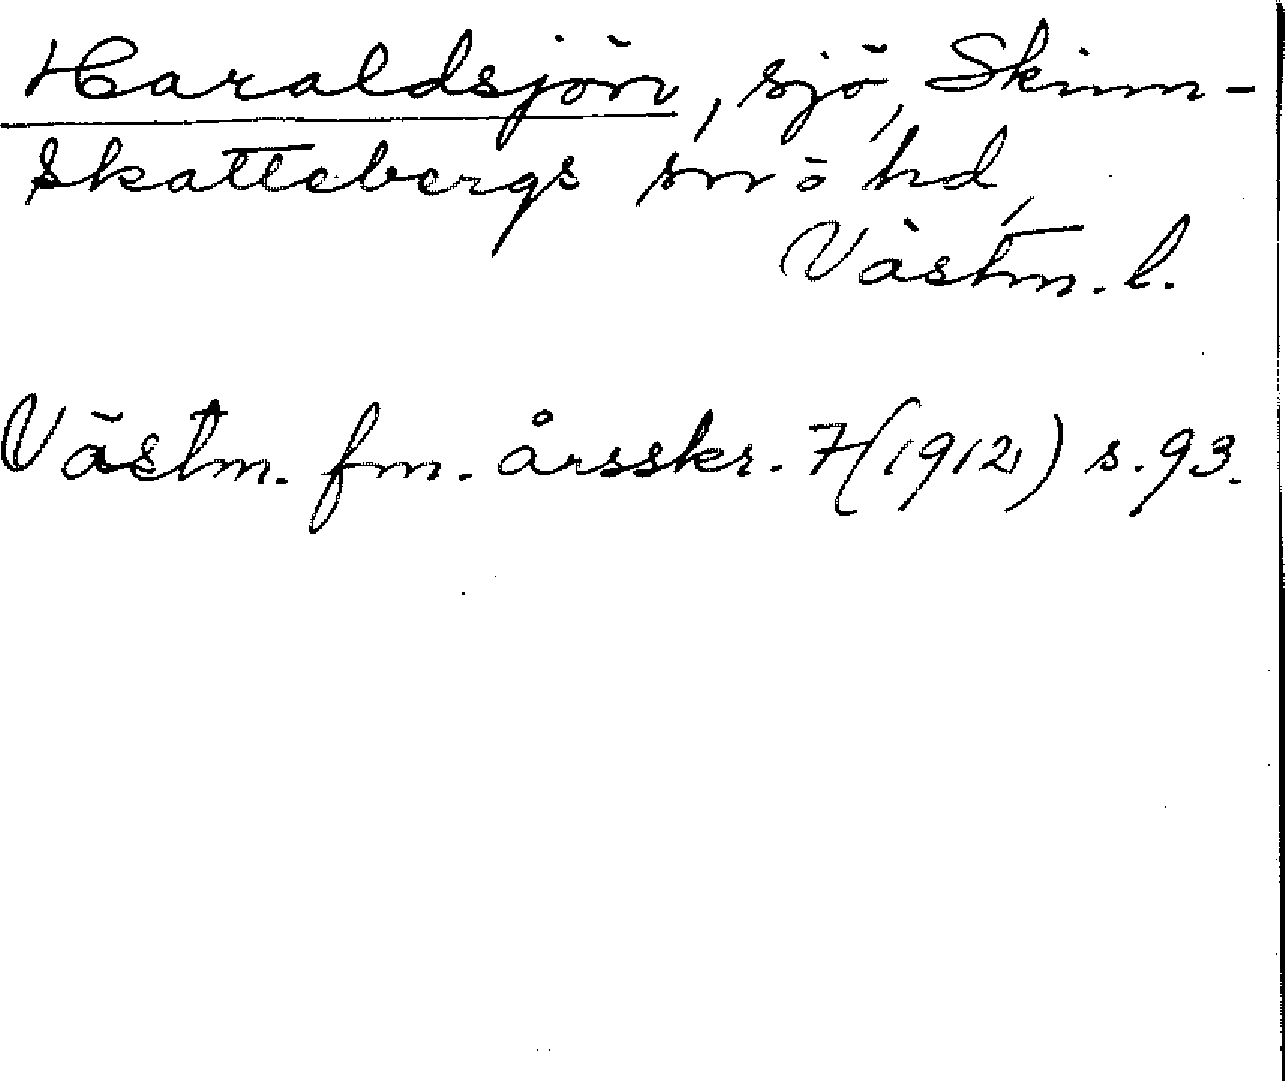 Haraldsjön, sjö, Skinn-
skattebergs sn o hd,
Västm. l.
Västm. fm. årsskr. 7 (1912) s. 93.